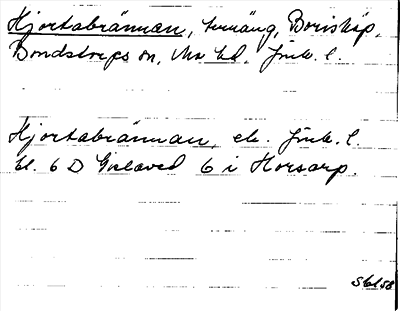 Hjortabrännan, svinäng, Boriskåp,
Bondstorps sn, Mo hd, Jönk. l.
Hjortabrännan, ek. Jönk. l.
bl. 6 D Gislaved 6 i Horsarp.
Skbl 58